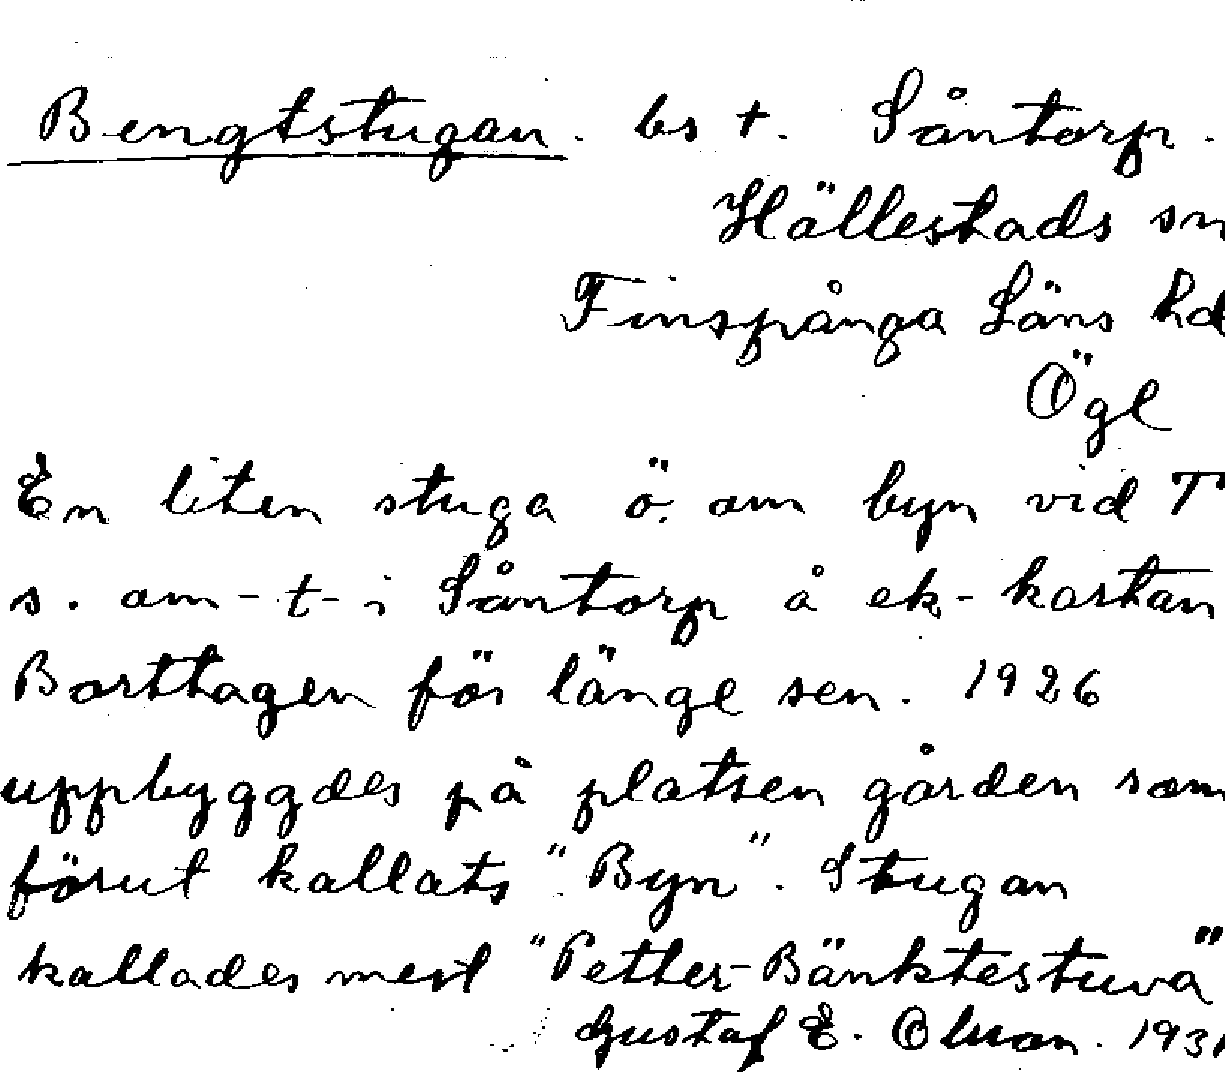 Bengtstugan. bs t. Såntorp.
Hällestads sn
Finspånga Läns hd
Ögl
En liten stuga ö. om byn vid T
s. om -t- i Såntorp å ek-kartan
Borttagen för länge sen. 1926
uppbyggdes på platsen gården som
förut kallats "Byn". Stugan
kallades mest "Petter-Bänktestuva"
Gustaf E. 1931